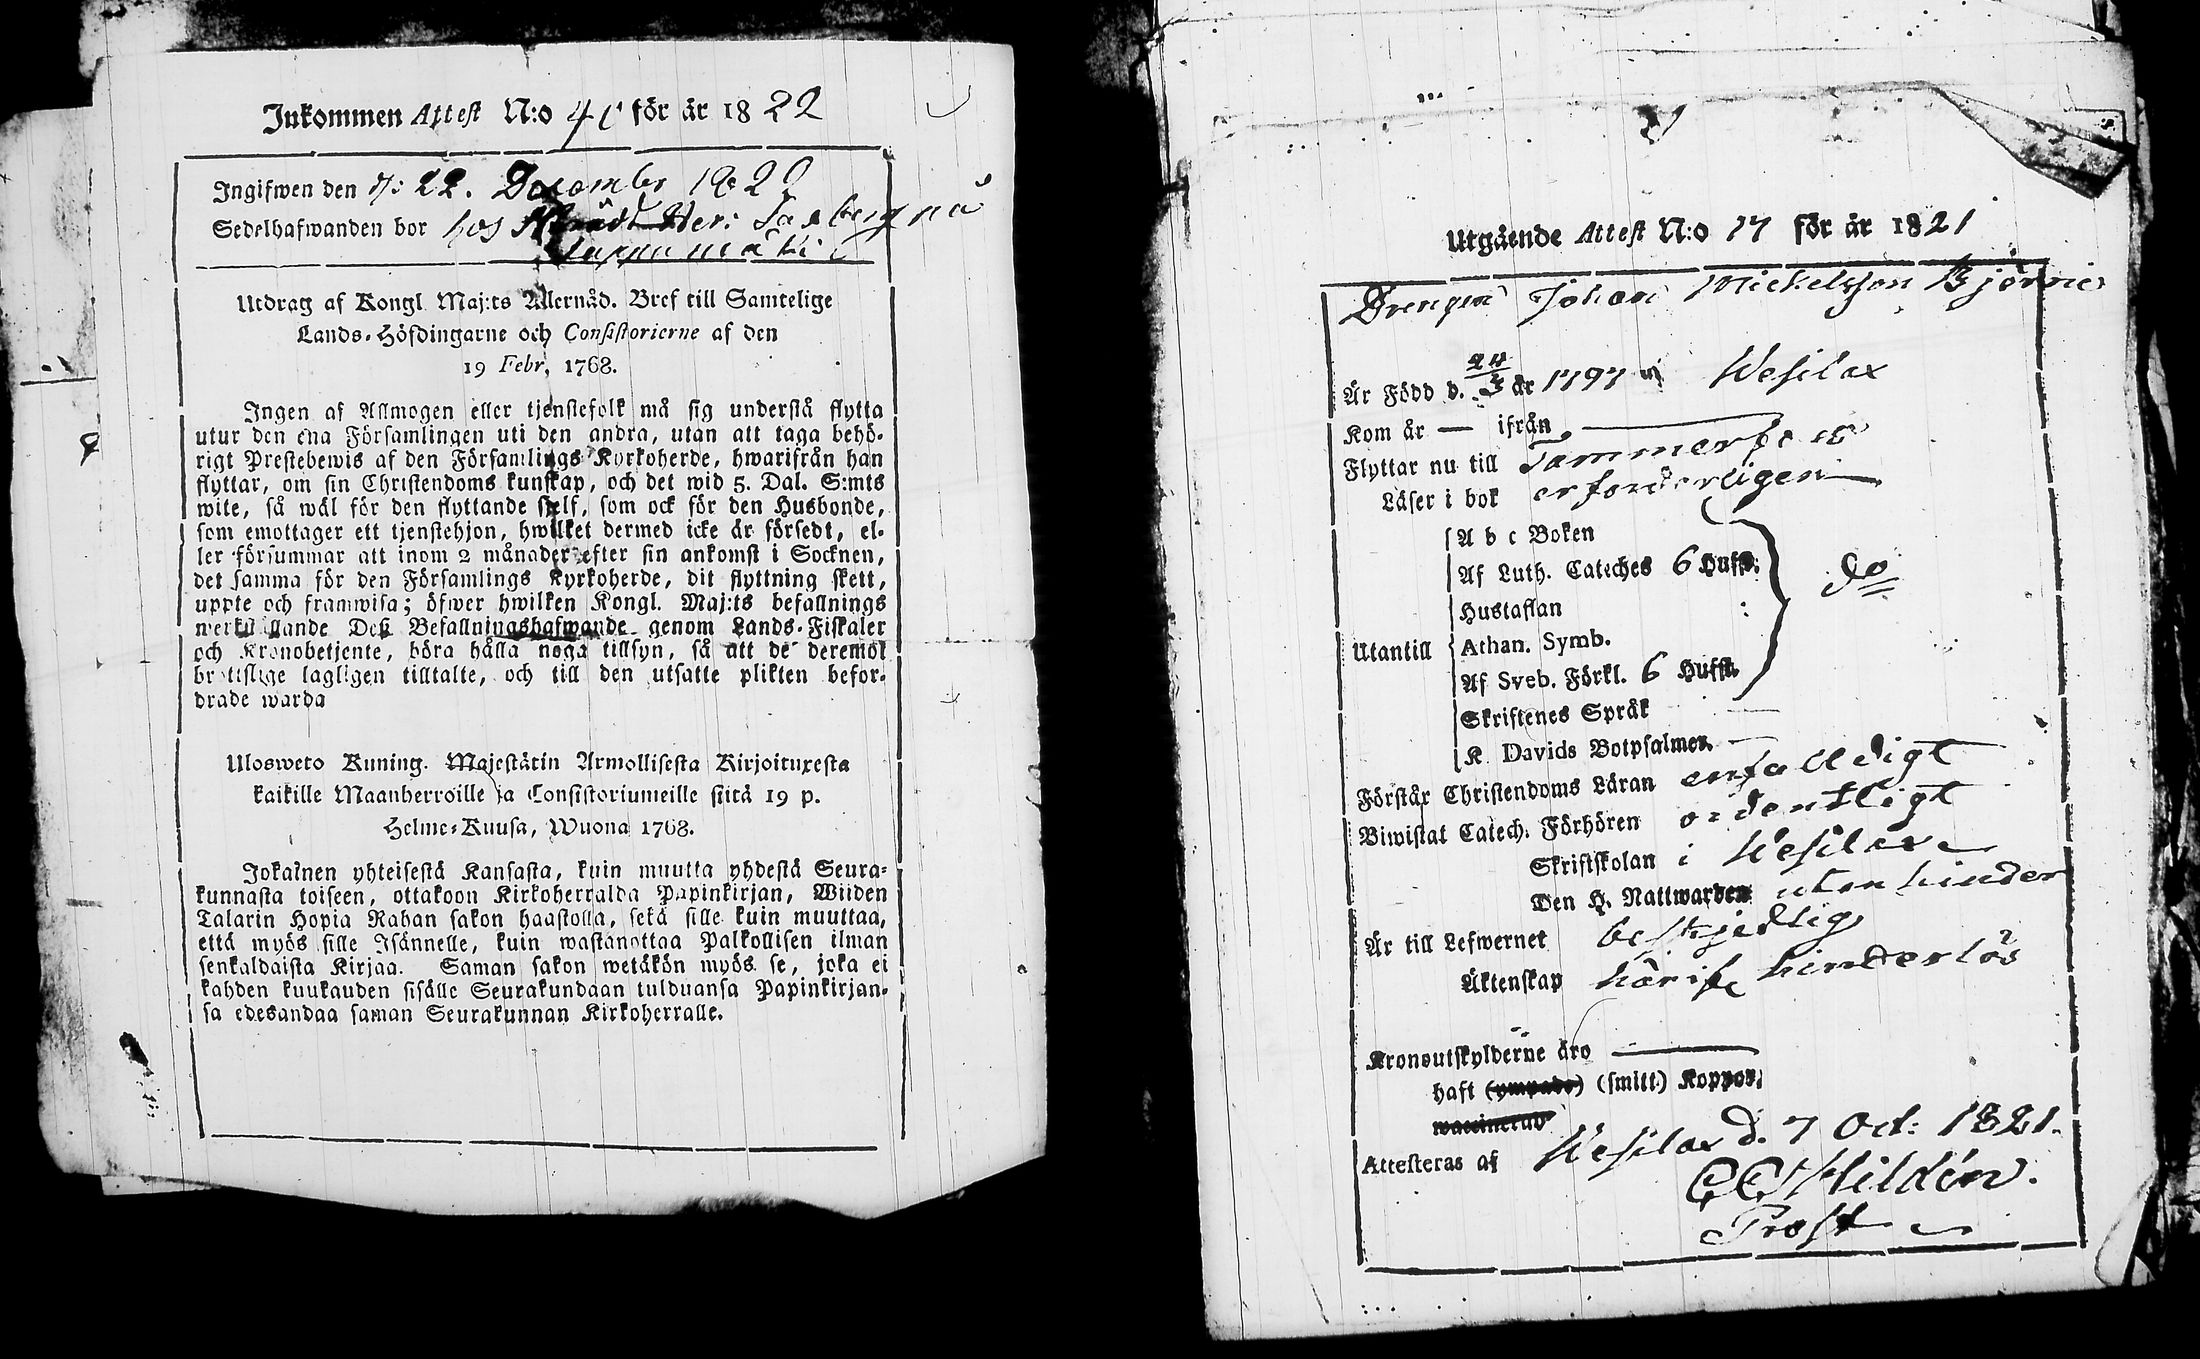 Inkommen Attest N:o 41 för år 1822
Ingifwen den d: 22. December 1822
Sedelhafwanden bor hos Her: på
Utdrag af Kongl. Maj:ts Allernåd. Bref till Samtelige
Lands-Höfdingarne och Consistorierne af den
19 Febr. 1768.
Ingen af Allmogen eller tjenstefolk må sig understå flytta
utur den ena Församlingen uti den andra, utan att taga behö-
rigt Prestebewis af den Församlings Kyrkoherde, hwarifrån han
flyttar, om sin Christendoms kunskap, och det wid 5. Dal. S:mts
wite, så wäl för den flyttande sjelf, som ock för den Husbonde,
som emottager ett tjenstehjon, hwilket dermed icke är försedt, el-
ler försummar att inom 2 månader efter sin ankomst i Socknen,
det samma för den Församlings Kyrkoherde, dit flyttning skett,
uppte och framwisa; öfwer hwilken Kongl. Maj:ts befallnings
werkställande Deß Befallningshafwande genom Lands-Fiskaler
och Kronobetjente, böra hålla noga tillsyn, så att de deremot
brottslige lagligen tilltalte, och till den utsatte plikten befor-
drade warda
Ulosweto Kuning. Majestätin Armollisesta Kirjoituxesta
kaikille Maanherroille ja Consistoriumeille siitä 19 p.
Helme-Kuusa, Wuona 1768.
Jokainen yhteisestä Kansasta, kuin muutta yhdestä Seura-
kunnasta toiseen, ottakoon Kirkoherralda Papinkirjan, Wiiden
Talarin Hopia Rahan sakon haastolla, sekä sille kuin muuttaa,
että myös sille Isännelle, kuin wastanottaa Palkollisen ilman
senkaldaista Kirjaa. Saman sakon wetäkön myös se, joka ei
kahden kuukauden sisälle Seurakundaan tulduansa Papinkirjan-
sa edesandaa saman Seurakunnan Kirkoherralle.
Utgående Attest N:o 17 för år 1821
Drengen Johan Michelsson Björni
Är Född d. 24/3 år 1797 i Wesilax
Kom år — ifrån —
Flyttar nu till Tammerfors
Läser i bok erforderligen
A b c Boken
Af Luth. Cateches 6 Hufst.
Hustaflan
Utantill Athan. Symb. do
Af Sveb. Förkl. 6 Hufst.
Skriftenes Språk —
K. Davids Botpsalmer. —
Förstår Christendoms Läran enfalldigt
Biwistat Catech. Förhören ordentligt
Skriftskolan i Wesilax
Den H. Nattwarden utan hinder
Är till Lefwernet beskjedlig
Äktenskap härifr. hinderlös
Kronoutskylderne äro —
haft (ympade) (smitt.) Koppor,
waccinerad
Attesteras af Wesilax d. 7 Oct: 1821.
Hildén.
Prost